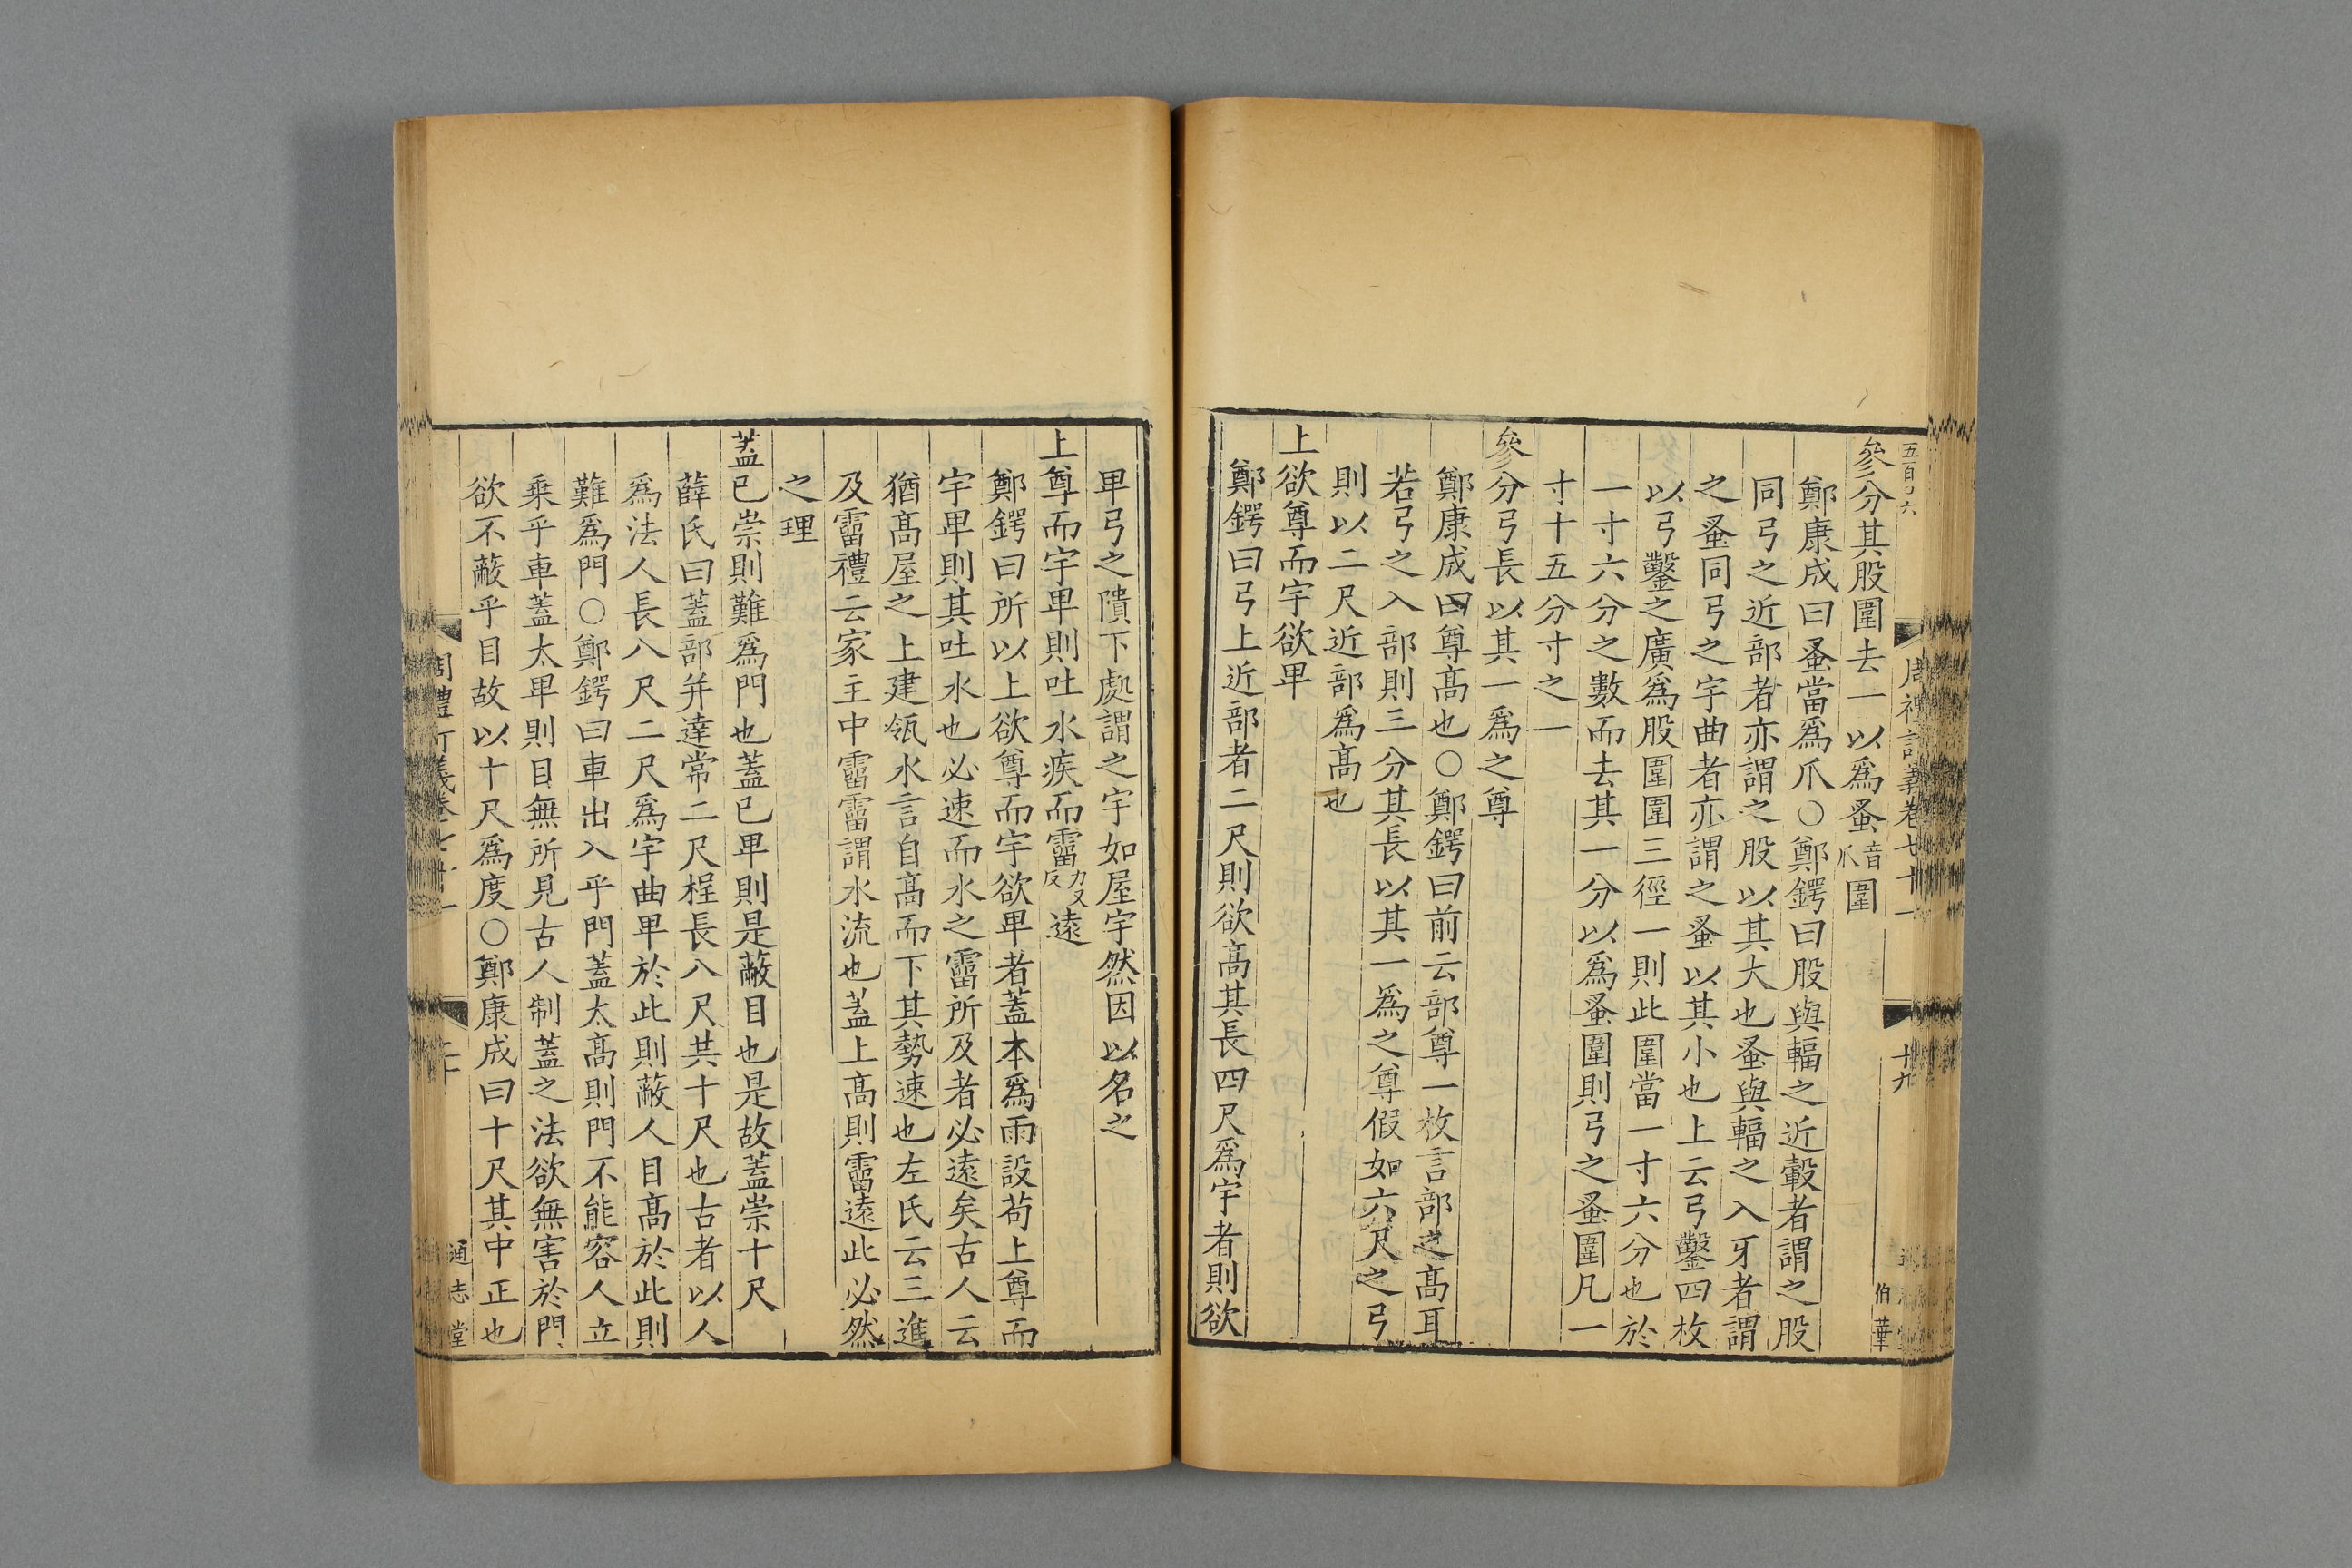 參分其股圍去一以爲蚤音爪圍
鄭康成曰蚤當爲爪○鄭鍔曰股與輻之近轂者謂之股
同弓之近部者亦謂之股以其大也蚤與輻之入牙者謂
之蚤同弓之宇曲者亦謂之蚤以其小也上云弓鑿四枚
以弓鑿之廣爲股圍圍三徑一則此圍當一寸六分也於
一寸六分之數而去其一分以爲蚤圍則弓之蚤圍凡一
寸十五分寸之一
參分弓長以其一爲之尊
鄭康成曰尊髙也○鄭鍔曰前云部尊一枚言部之髙耳
若弓之入部則三分其長以其一爲之尊假如六尺之弓
則以二尺近部爲髙也
上欲尊而宇欲卑
鄭鍔曰弓上近部者二尺則欲髙其長四尺爲宇者則欲
十九
伯華
卑弓之隤下處謂之宇如屋宇然因以名之
上尊而宇卑則吐水疾而霤力又反遠
鄭鍔曰所以上欲尊而宇欲卑者蓋本爲雨設苟上尊而
宇卑則其吐水也必速而水之霤所及者必遠矣古人云
猶髙屋之上建瓴水言自髙而下其勢速也左氏云三進
及霤禮云家主中霤霤謂水流也蓋上髙則霤遠此必然
之理
蓋已崇則難爲門也蓋已卑則是蔽目也是故蓋崇十尺
薛氏曰蓋部并達常二尺桯長八尺共十尺也古者以人
爲法人長八尺二尺爲宇曲卑於此則蔽人目髙於此則
難爲門○鄭鍔曰車出入乎門蓋太髙則門不能容人立
乗乎車蓋太卑則目無所見古人制蓋之法欲無害於門
欲不蔽乎目故以十尺爲度○鄭康成曰十尺其中正也
通志堂